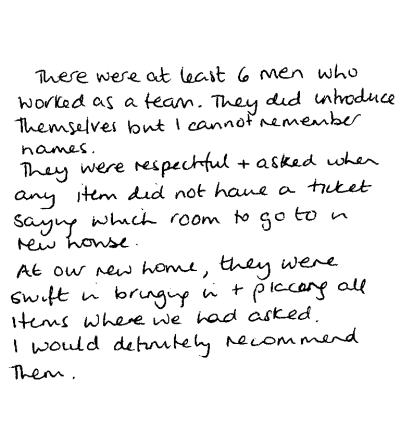 There were at least 6 men who
worked as a team. They did introduce
themselves but I cannot remember
names.
They were respectful + asked when
any item did not have a ticket
saying which room to go to in
new house.
At our new home, they were
swift in bringing in + placing all
items where we had asked.
I would definitely recommend
them.